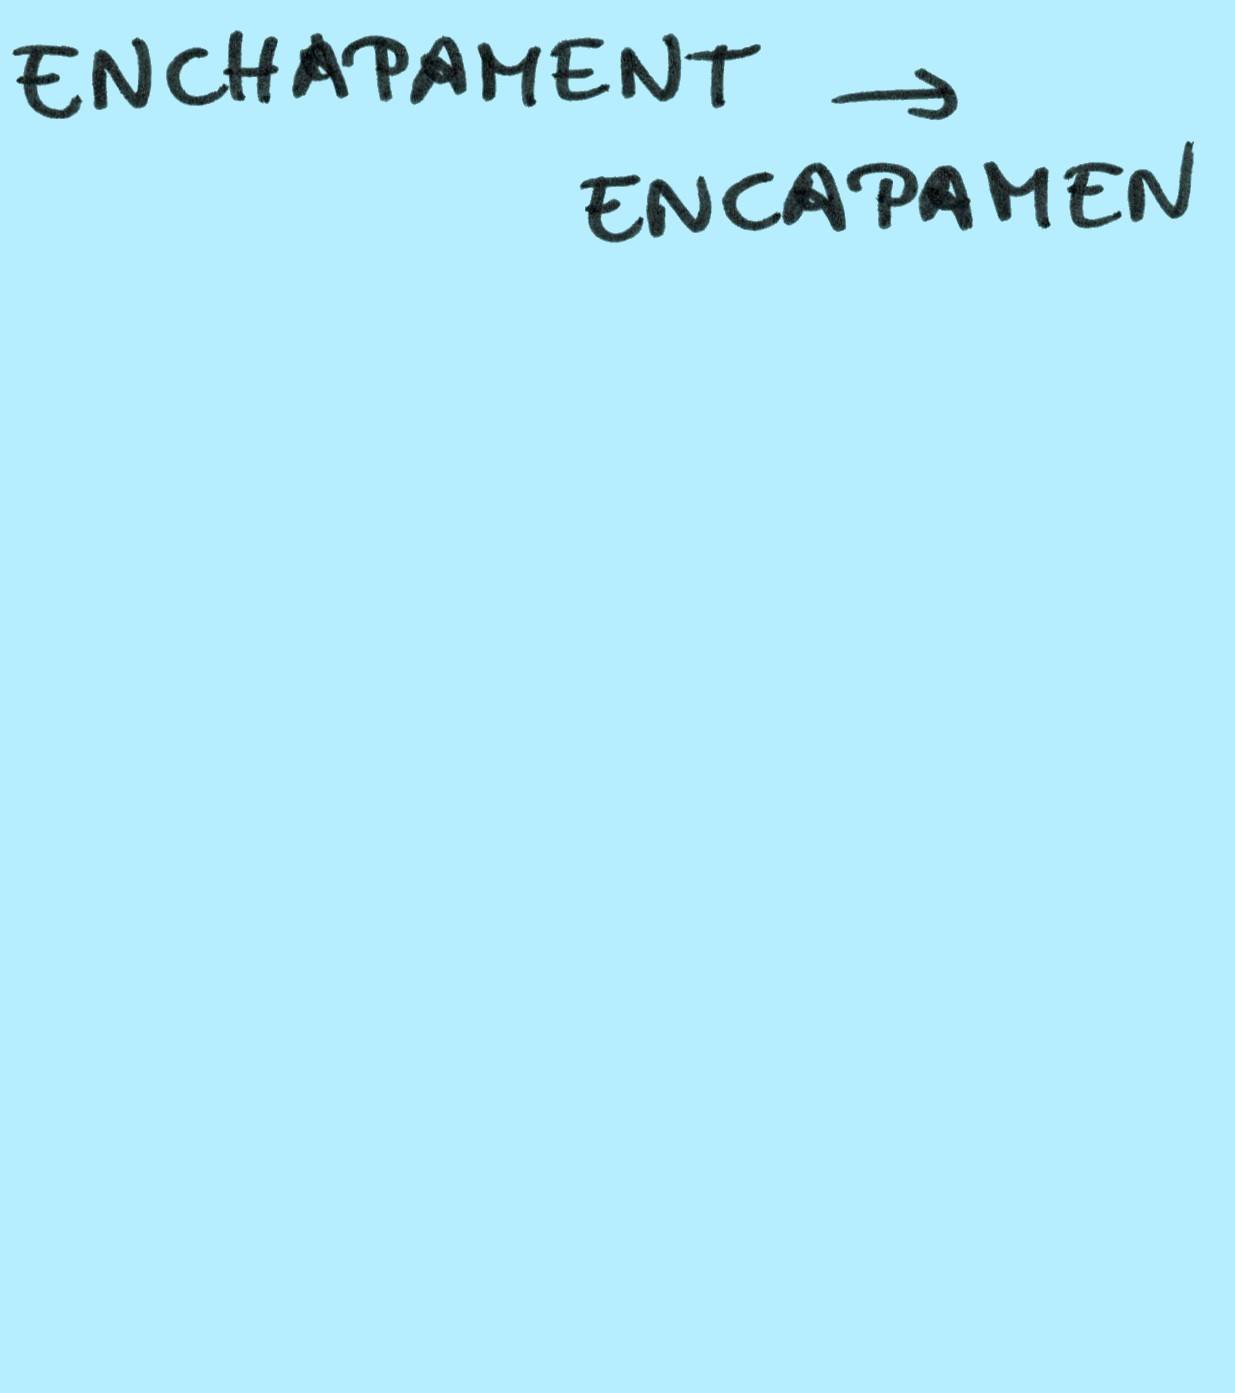 ENCHAPAMENT →
ENCAPAMEN